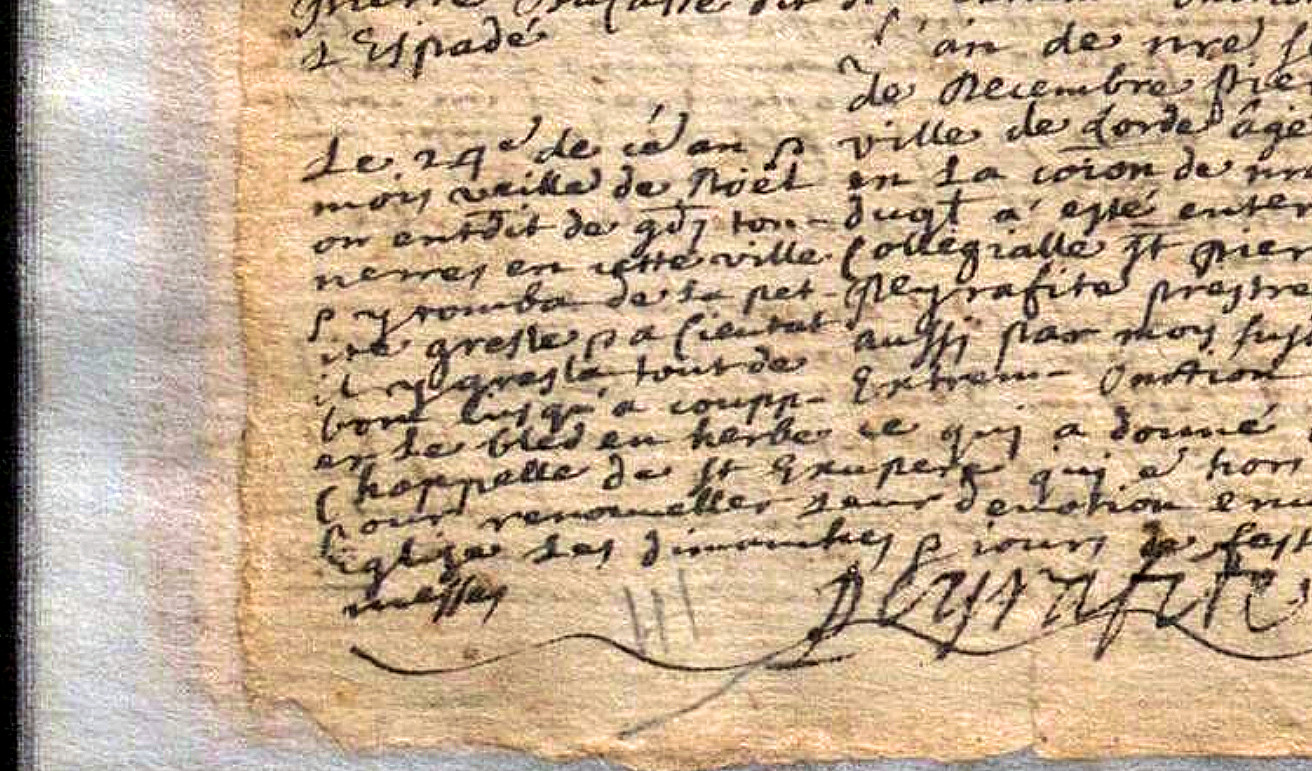 Pierre dit
l'Espadé
Le 24e de cé an &
mois veille de Noël
on entdit de gds ton-
nerres en cette ville
& y tomba de la pet-
ite gresle & a Cieutat
il y gresla tout de
bon jusqu'a coupp-
er le bled en herbe ce qui a donné
Chappelle de St Exupere qui e hors
pour renouveller leur devotion
Eglize les dimanches & jours de fest
messes
l'an de nre
de Decembre Pier
ville de Lorde âgé
en la coion de nr
dugl a esté enter
Collegialle St pier
Peyrafite prestre
aussi par moy
Extrem- Onction
Peyrafite